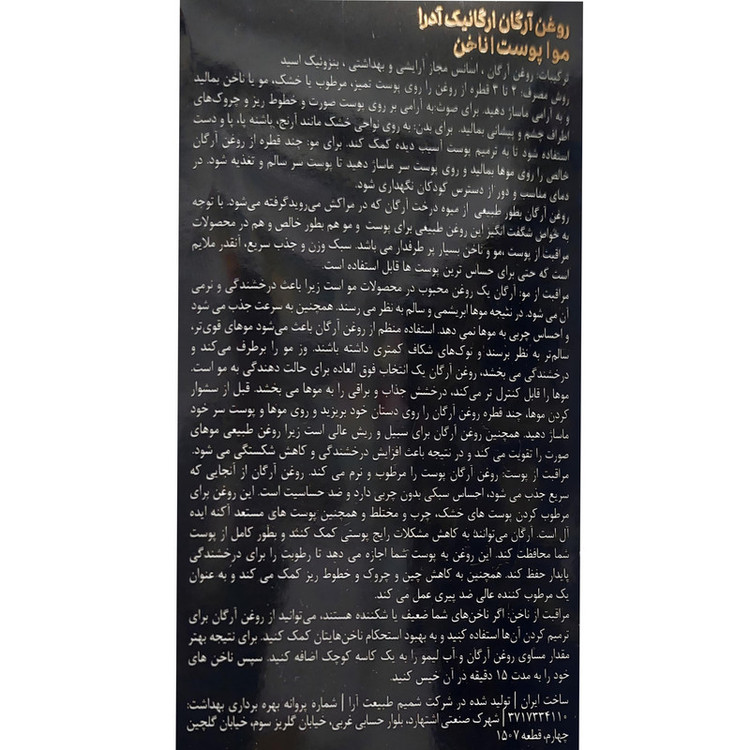 روغن آرگان ارگانیک آدرا
مو | پوست | ناخن
ترکیبات: روغن آرگان ، اسانس مجاز آرایشی و بهداشتی ، بنزوئیک اسید
روش مصرف: ۲ تا ۳ قطره از روغن را روی پوست تمیز، مرطوب یا خشک، مو یا ناخن بمالید
و به آرامی ماساژ دهید. برای صوت:به آرامی بر روی پوست صورت و خطوط ریز و چروک‌های
اطراف چشم و پیشانی بمالید. برای بدن: به روی نواحی خشک مانند آرنج، پاشنه پا، پا و دست
استفاده شود تا به ترمیم پوست آسیب دیده کمک کند. برای مو: چند قطره از روغن آرگان
خالص را روی موها بمالید و روی پوست سر ماساژ دهید تا پوست سر سالم و تغذیه شود. در
دمای مناسب و دور از دسترس کودکان نگهداری شود.
روغن آرگان بطور طبیعی از میوه درخت آرگان که در مراکش می‌روید‌گرفته می‌شود. با توجه
به خواص شگفت انگیز این روغن طبیعی برای پوست و مو هم بطور خالص و هم در محصولات
مراقبت از پوست ،مو و ناخن بسیار پر طرفدار می باشد. سبک وزن و جذب سریع، آنقدر ملایم
است که حتی برای حساس ترین پوست ها قابل استفاده است.
مراقبت از مو: آرگان یک روغن محبوب در محصولات مو است زیرا باعث درخشندگی و نرمی
آن می شود. در نتیجه موها ابریشمی و سالم به نظر می رسند. همچنین به سرعت جذب می شود
و احساس چربی به موها نمی دهد. استفاده منظم از روغن آرگان باعث می‌شود موهای قوی‌تر،
سالم‌تر به نظر برسند و نوک‌های شکاف کمتری داشته باشند. وز مو را برطرف می‌کند و
درخشندگی می بخشد، روغن آرگان یک انتخاب فوق العاده برای حالت دهندگی به مو است.
موها را قابل کنترل تر می‌کند، درخشش جذاب و براقی را به موها می بخشد. قبل از سشوار
کردن موها، چند قطره روغن آرگان را روی دستان خود بریزید و روی موها و پوست سر خود
ماساژ دهید. همچنین روغن آرگان برای سبیل و ریش عالی است زیرا روغن طبیعی موهای
صورت را تقویت می کند و در نتیجه باعث افزایش درخشندگی و کاهش شکستگی می شود.
مراقبت از پوست: روغن آرگان پوست را مرطوب و نرم می کند. روغن آرگان از آنجایی که
سریع جذب می شود، احساس سبکی بدون چربی دارد و ضد حساسیت است. این روغن برای
مرطوب کردن پوست های خشک، چرب و مختلط و همچنین پوست های مستعد آکنه ایده
آل است. آرگان می‌توانند به کاهش مشکلات رایج پوستی کمک کنند و بطور کامل از پوست
شما محافظت کند. این روغن به پوست شما اجازه می دهد تا رطوبت را برای درخشندگی
پایدار حفظ کند. همچنین به کاهش چین و چروک و خطوط ریز کمک می کند و به عنوان
یک مرطوب کننده عالی ضد پیری عمل می کند.
مراقبت از ناخن: اگر ناخن‌های شما ضعیف یا شکننده هستند، می‌توانید از روغن آرگان برای
ترمیم کردن آن‌ها استفاده کنید و به بهبود استحکام ناخن‌هایتان کمک کنید. برای نتیجه بهتر
مقدار مساوی روغن آرگان و آب لیمو را به یک کاسه کوچک اضافه کنید. سپس ناخن های
خود را به مدت ۱۵ دقیقه در آن خیس کنید.
ساخت ایران | تولید شده در شرکت شمیم طبیعت آرا | شماره پروانه بهره برداری بهداشت:
۳۷۱۷۳۳۴۱۱۰ | شهرک صنعتی اشتهارد، بلوار حسابی غربی، خیابان گلریز سوم، خیابان گلچین
چهارم، قطعه ۱۵۰۷